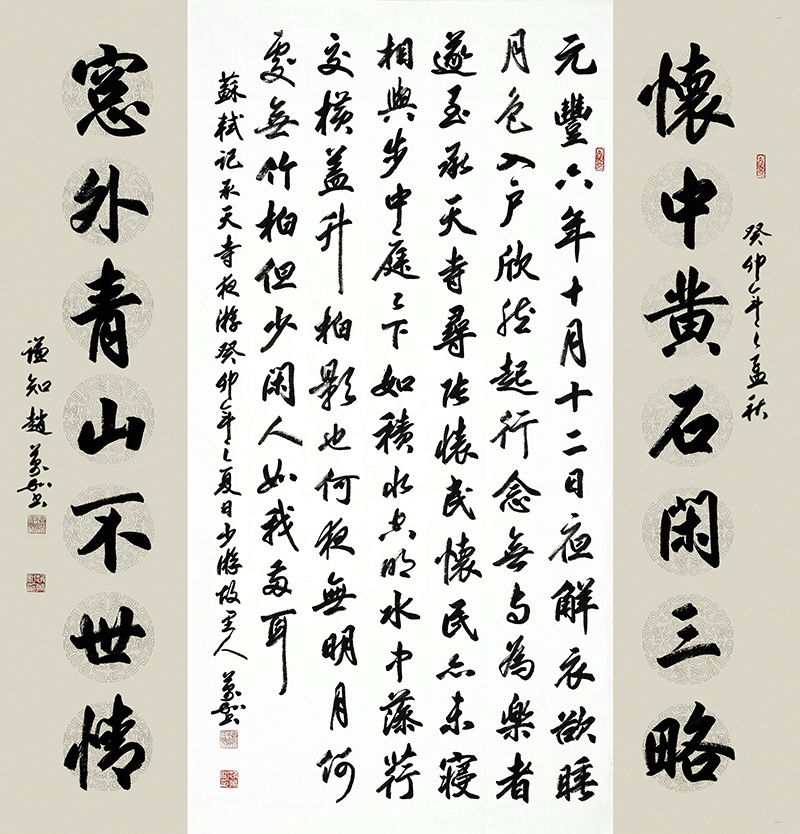 癸卯年之孟秋
懷中黄石閑三略
元豐六年十月十二日夜解衣欲睡
月色入户欣然起行念無与為樂者
遂至承天寺尋张懷民懷民亦未寝
相與步中庭ミ下如積水空明水中藻荇
交横盖竹柏影也何夜無明月何
處無竹柏但少閑人如我两耳
蘇軾记承天寺夜游癸卯年之夏日少游故里人
窓外青山不世情
谦知趙